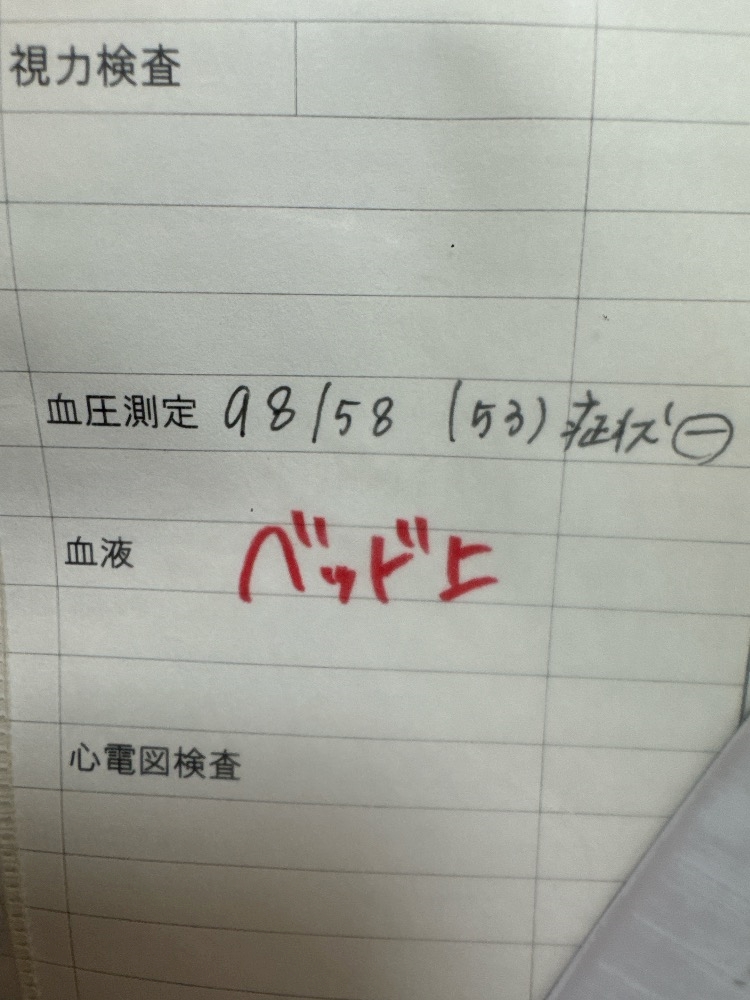 視力検査
血圧測定 98/58 (53) 症状㊀
血液 ベッド上
心電図検査